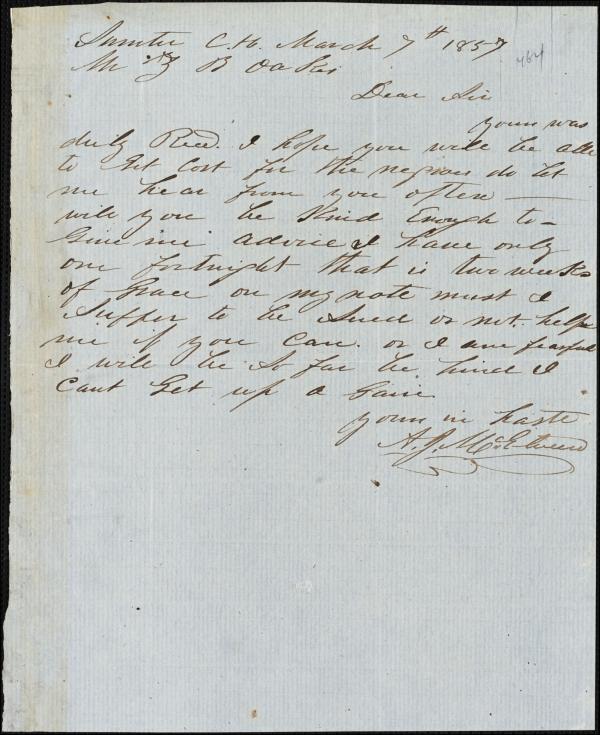 Sumter C.H. March 7th 1857
464
Mr Z B Oakes
Dear Sir
yours was
duly Recd. I hope you will be able
to Get Cost for the negroes do let
me hear from you often —
will you be Kind Enough to –
Give me advice I have only
one fortnight that is two weeks
of Grace on my note must I
Suffer to be Sued or not. help
me if you can. or I am fearful
I will be So far be hind I
cant Get up a Gain
yours in haste
A. J. McElveen